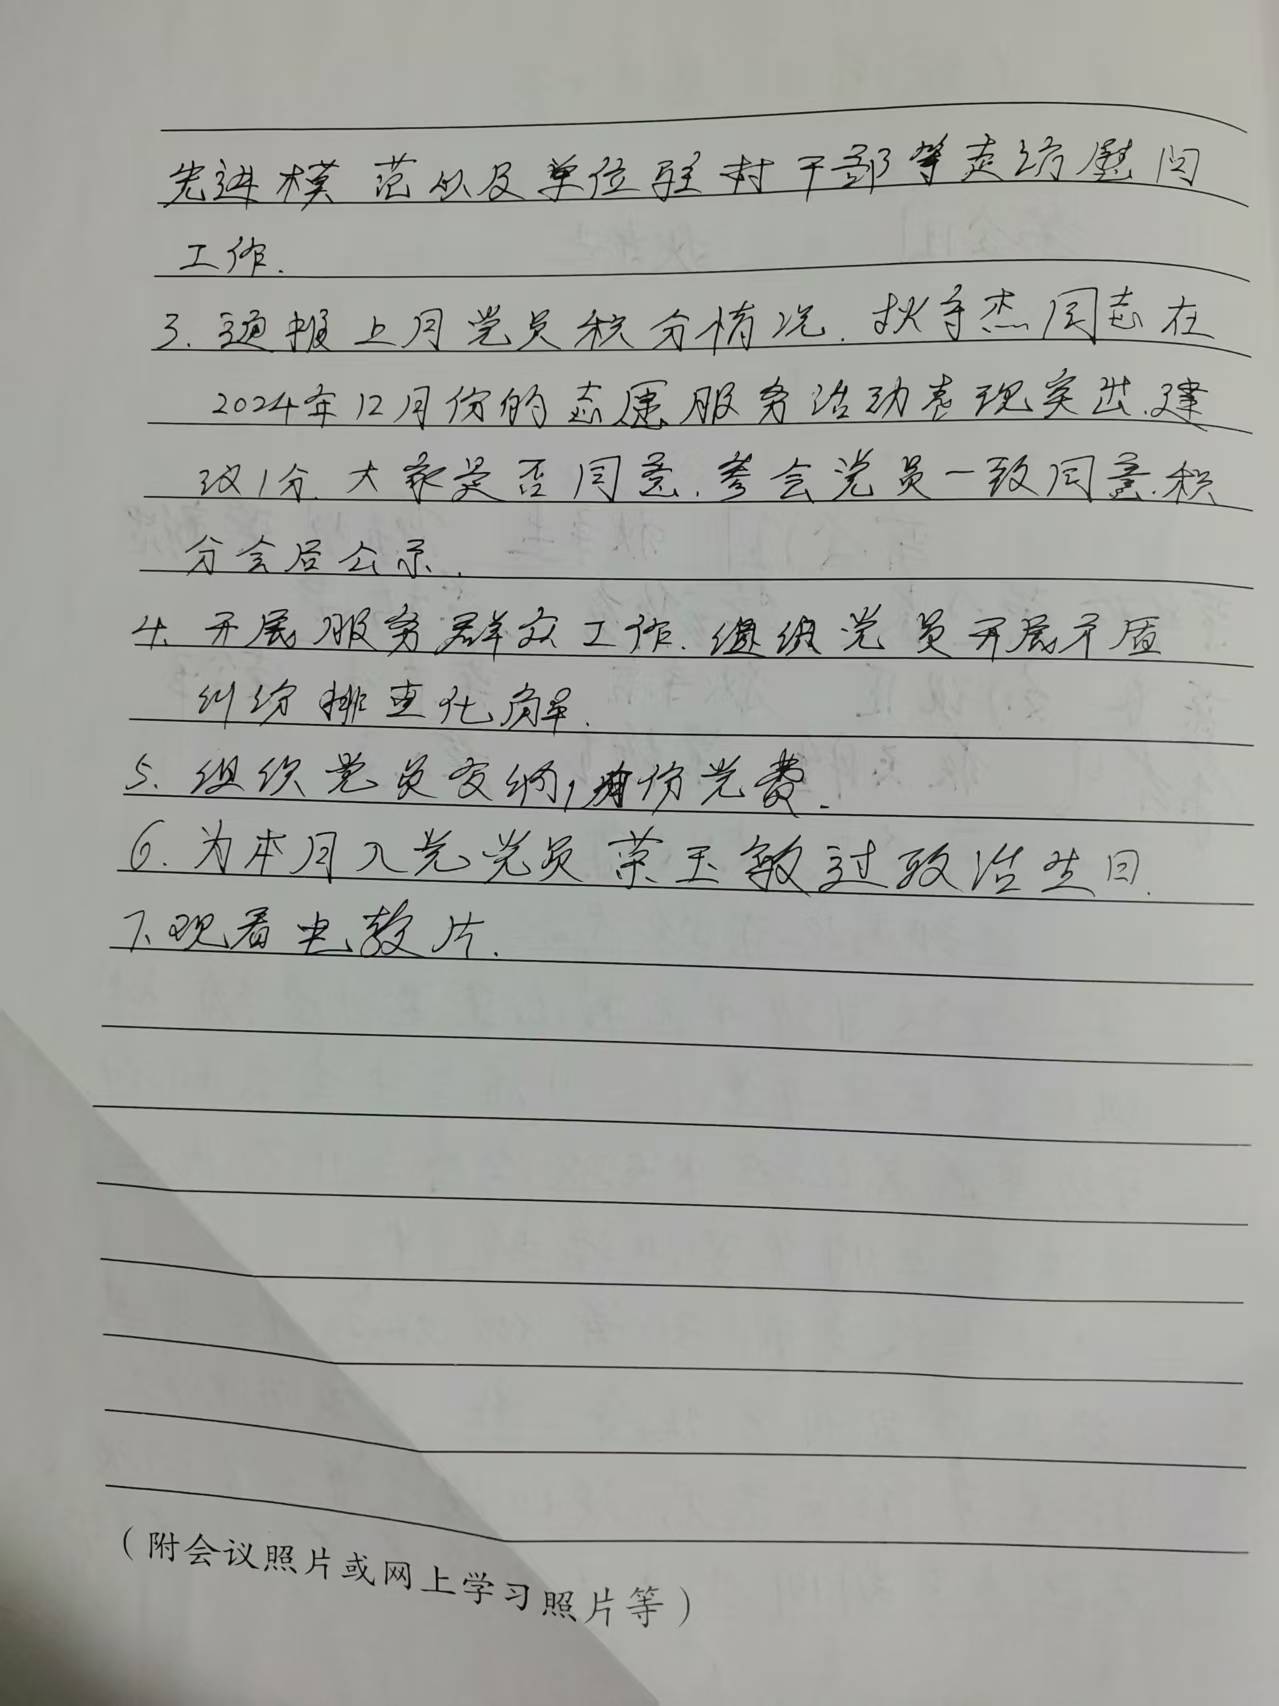 先进模范以及单位驻村干部等走访慰问
工作.
3. 通报上月党员积分情况. 狄守杰同志在
2024年12月份的志愿服务活动表现突出.建
议1分. 大家是否同意. 参会党员一致同意.积
分会后公示.
4. 开展服务群众工作. 组织党员开展矛盾
纠纷排查化解.
5. 组织党员交纳1月份党费.
6. 为本月入党党员荣玉敏过政治生日.
7. 观看电教片.
(附会议照片或网上学习照片等)